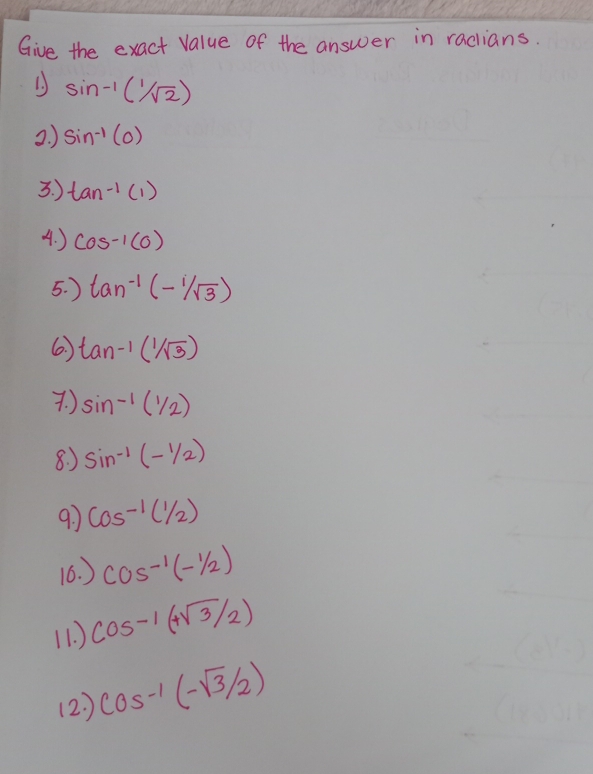 Give the exact Value of the answer in radians.
1.) sin-1 (1/√2)
2.) Sin-1 (0)
3.) tan-1 (1)
4.) Cos-1(0)
5.) tan-1 (-1/√3)
6.) tan-1 (1/√3)
7.) sin-1 (1/2)
8.) Sin-1 (-1/2)
9.) Cos-1 (1/2)
10.) COS-1 (-1/2)
11.) COS-1 (+√3/2)
12.) COS-1 (-√3/2)